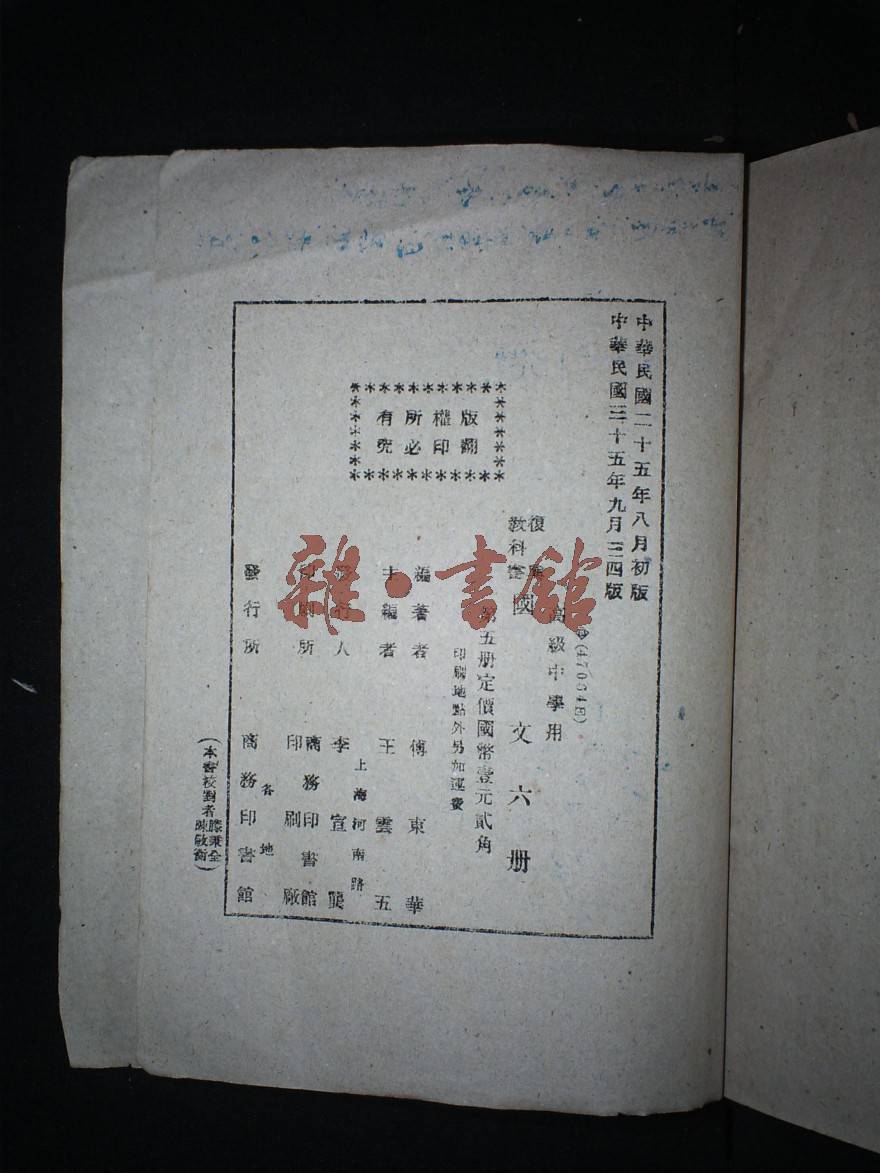 中華民國二十五年八月初版
中華民國三十五年九月三四版
(47064E)
高級中學用
復興教科書 國文六册
第五册定價國幣壹元貳角
印刷地點外另加運費
版權所有
翻印必究
編著者 傅東華
主編者 王雲五
上海河南路
發行人 李宣龔
印刷所 商務印書館印刷廠
各地
發行所 商務印書館
(本書校對者滕秉全陳敬衡)
雜·書館